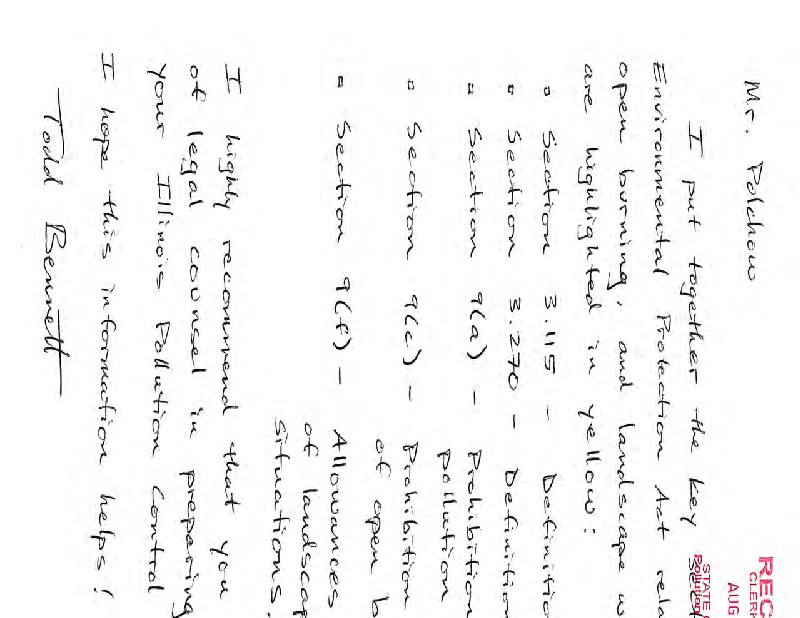 Mr. Polchow
I put together the key sect
Environmental Protection Act rela
open burning, and landscape w
are highlighted in yellow:
▫ Section 3.115 - Definitio
▫ Section 3.270 - Definition
▫ Section 9(a) - Prohibition
pollution
▫ Section 9(c) - Prohibition
of open b
▫ Section 9(f) - Allowances
of landscap
situations.
I highly recommend that you
of legal counsel in preparing
your Illinois Pollution Control
I hope this information helps!
Todd Bennett
REC
CLERK
AUG
STATE
Pollution